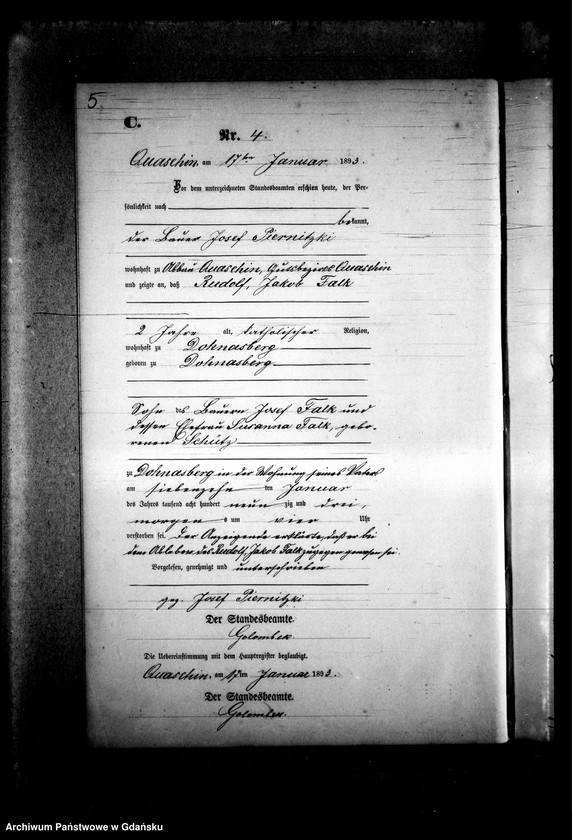 5.
C.
Nr. 4.
Quaschin, am 17ten Januar 1893.
Vor dem unterzeichneten Standesbeamten erschien heute, der Per-
sönlichkeit nach
bekannt,
der Bauer Josef Piernitzki
wohnhaft zu Abbau Quaschin, Gutsbezirks Quaschin
und zeigte an, daß Rudolf, Jakob Falk
2 Jahre alt, katholischer Religion,
wohnhaft zu Dohnasberg
geboren zu Dohnasberg
Sohn des Bauern Josef Falk und
dessen Ehefrau Susanna Falk, gebo-
renen Schütz
zu Dohnasberg in der Wohnung seines Vaters
am siebenzehn ten Januar
des Jahres tausend acht hundert neun zig und drei,
morgens um vier Uhr
verstorben sei. Der Anzeigende erklärte, daß er bei
dem Ableben des Rudolf, Jakob Falk zugegen gewesen sei.
Vorgelesen, genehmigt und unterschrieben
gez. Josef Piernitzki
Der Standesbeamte.
Golombek
Die Uebereinstimmung mit dem Hauptregister beglaubigt.
Quaschin, am 17ten Januar 1893.
Der Standesbeamte.
Golombek.
Archiwum Państwowe w Gdańsku